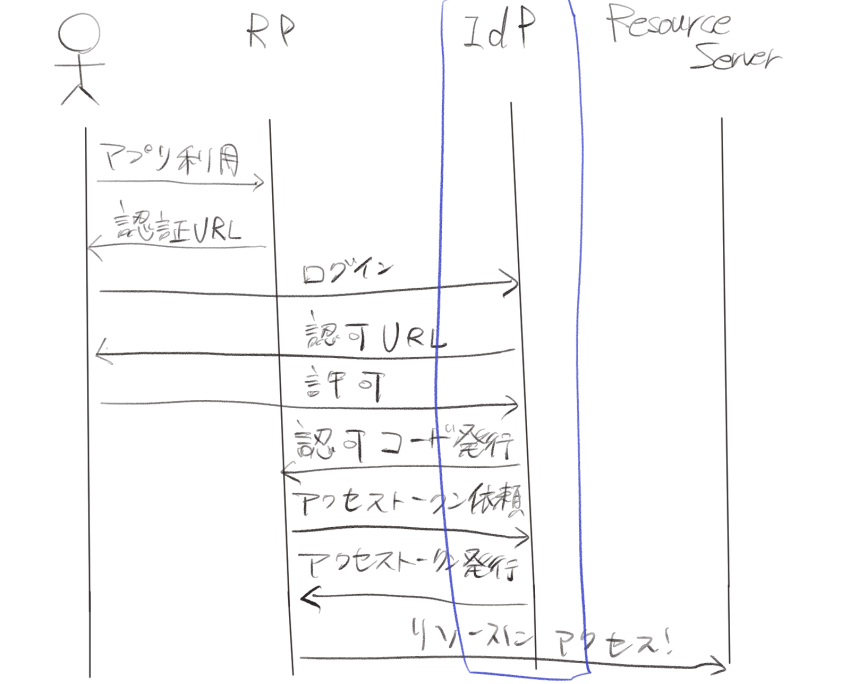 RP
IdP
Resource
Server
アプリ利用
認証URL
ログイン
認可URL
許可
認可コード発行
アクセストークン依頼
アクセストークン発行
リソースに アクセス!